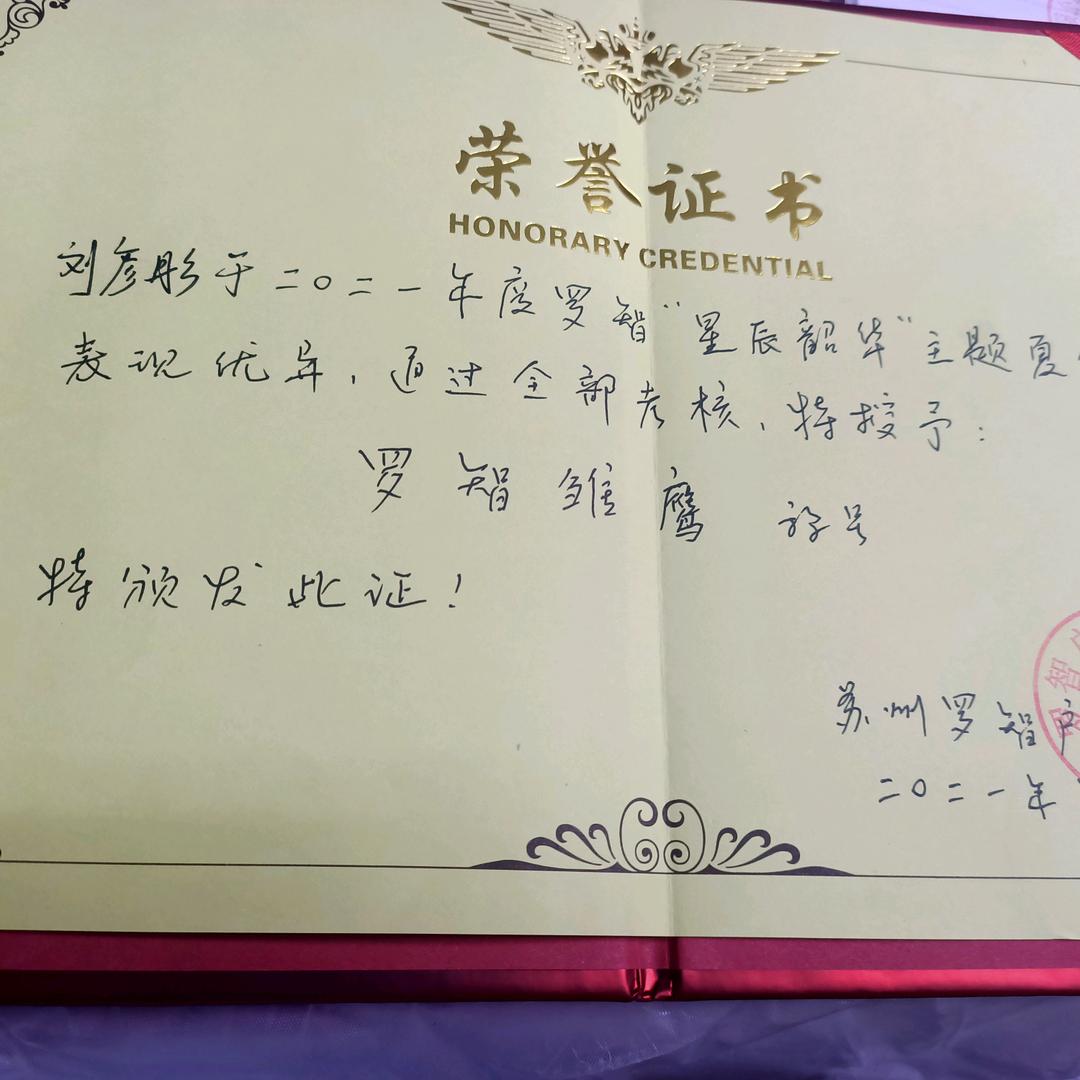 荣誉证书
HONORARY CREDENTIAL
刘彦彤于二〇二一年度罗智“星辰韶华”主题夏
表现优异，通过全部考核，特授予：
罗智雏鹰 称号
特颁发此证！
苏州罗智户
二〇二一年
智